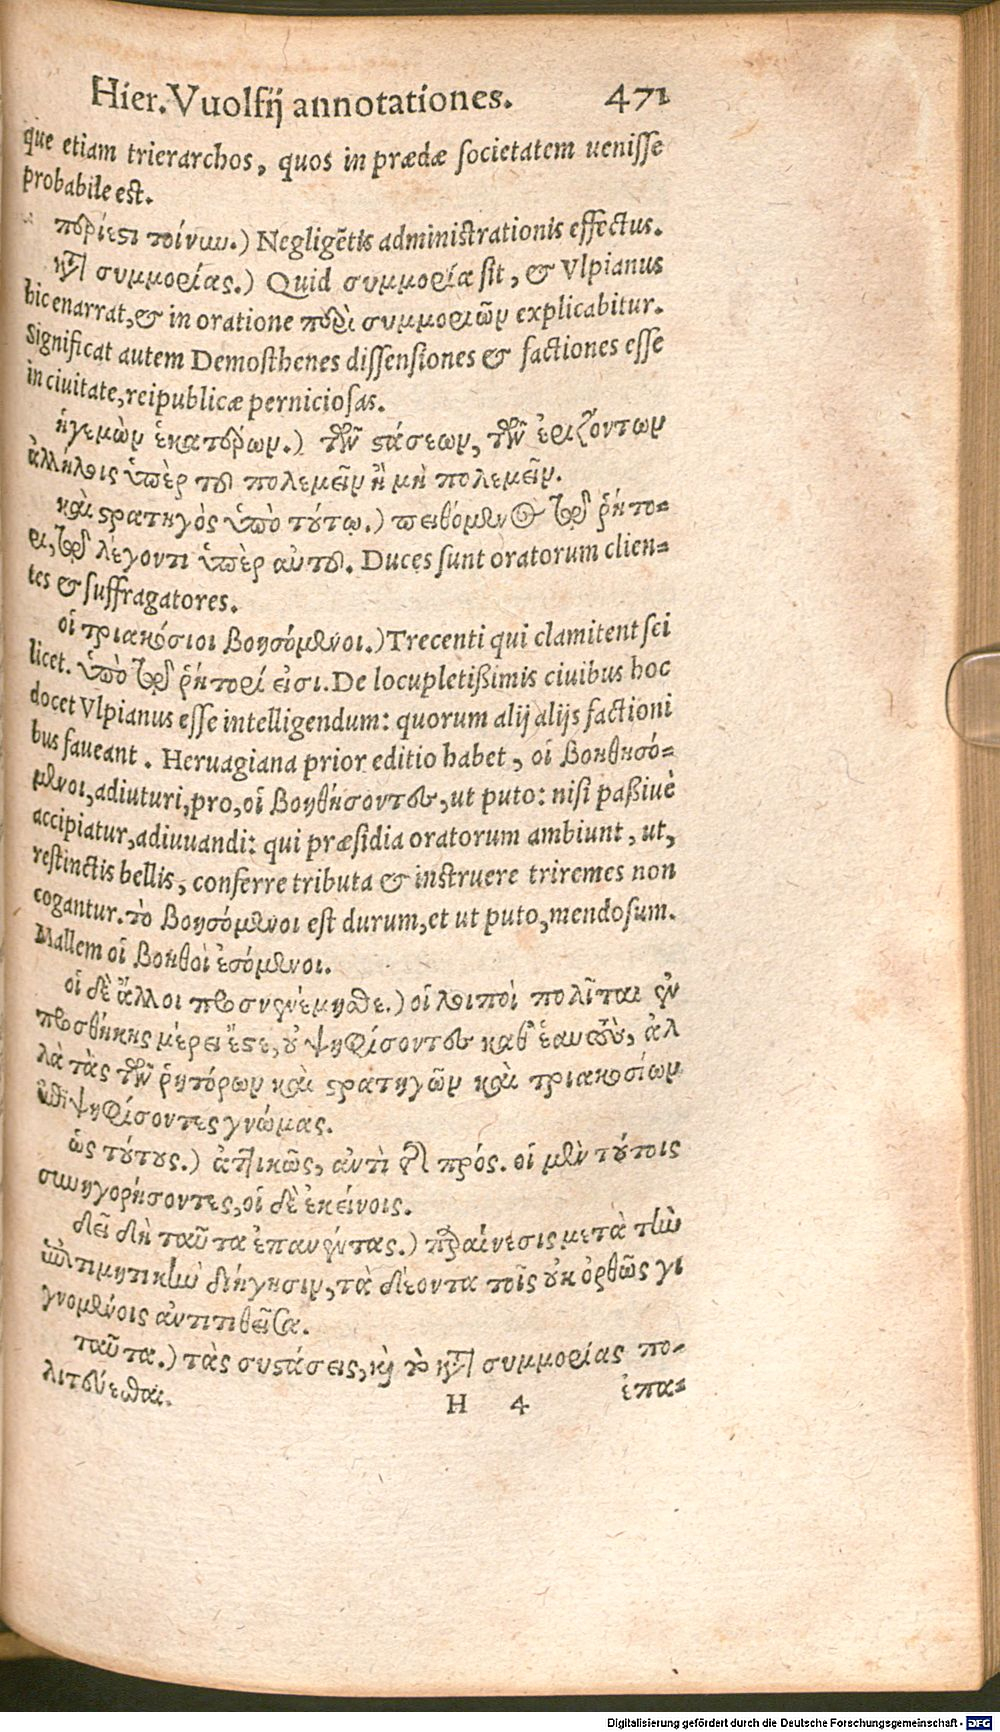 Hier. Vuolfij annotationes. 471
que etiam trierarchos, quos in prædæ societatem uenisse
probabile est.
περίεστι τοίνυν.) Negligẽtis administrationis effectus.
κατὰ συμμορίας.) Quid συμμορία sit, & Vlpianus
hic enarrat, & in oratione περὶ συμμοριῶν explicabitur.
Significat autem Demosthenes dissensiones & factiones esse
in ciuitate, reipublicæ perniciosas.
ἡγεμὼν ἑκατέρων.) τῶν στάσεων, τῶν ἐριζόντων
ἀλλήλοις ὑπὲρ τοῦ πολεμεῖν ἢ μὴ πολεμεῖν.
καὶ στρατηγὸς ὑπὸ τούτῳ.) πειθόμενος τῷ ῥήτο-
ρι, τῷ λέγοντι ὑπὲρ αὐτοῦ. Duces sunt oratorum clien-
tes & suffragatores.
οἱ τριακόσιοι βοησόμενοι.) Trecenti qui clamitent sci
licet. ὑπὸ τῷ ῥήτορί εἰσι. De locupletißimis ciuibus hoc
docet Vlpianus esse intelligendum: quorum alij alijs factioni
bus faueant. Heruagiana prior editio habet, οἱ βοηθησό-
μενοι, adiuturi, pro, οἱ βοηθήσοντες, ut puto: nisi paßiuè
accipiatur, adiuuandi: qui præsidia oratorum ambiunt, ut,
restinctis bellis, conferre tributa & instruere triremes non
cogantur. τὸ βοησόμενοι est durum, et ut puto, mendosum.
Mallem οἱ βοηθοὶ ἐσόμενοι.
οἱ δὲ ἄλλοι προσνενέμησθε.) οἱ λοιποὶ πολῖται ἐν
προσθήκης μέρει ἔστε, οὐ ψηφίσοντες καθ' ἑαυτοὺς, ἀλ
λὰ τὰς τῶν ῥητόρων καὶ στρατηγῶν καὶ τριακοσίων
ἐπιψηφίσοντες γνώμας.
ὡς τούτους.) ἀττικῶς, ἀντὶ τοῦ πρός. οἱ μὲν τούτοις
συνηγορήσοντες, οἱ δὲ ἐκείνοις.
δεῖ δὴ ταῦτα ἐπανέντας.) παραίνεσις μετὰ τὴν
ἐπιτιμητικὴν διήγησιν, τὰ δέοντα τοῖς οὐκ ὀρθῶς γι
γνομένοις ἀντιτιθεῖσα.
ταῦτα.) τὰς συστάσεις, καὶ τὸ κατὰ συμμορίας πο-
λιτεύεσθαι.
H 4 ἐπα-
Digitalisierung gefördert durch die Deutsche Forschungsgemeinschaft - DFG